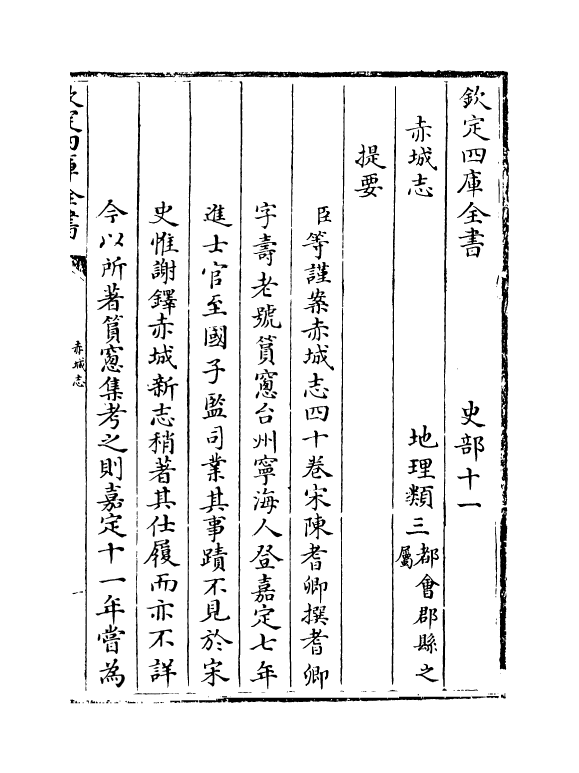 欽定四庫全書　史部十一
赤城志　地理類三都會郡縣之屬
提要
臣等謹案赤城志四十卷宋陳耆卿撰耆卿
字壽老號篔窻台州寧海人登嘉定七年
進士官至國子監司業其事蹟不見於宋
史惟謝鐸赤城新志稍著其仕履而亦不詳
今以所著篔窻集考之則嘉定十一年嘗為
欽定四庫全書
赤城志
一